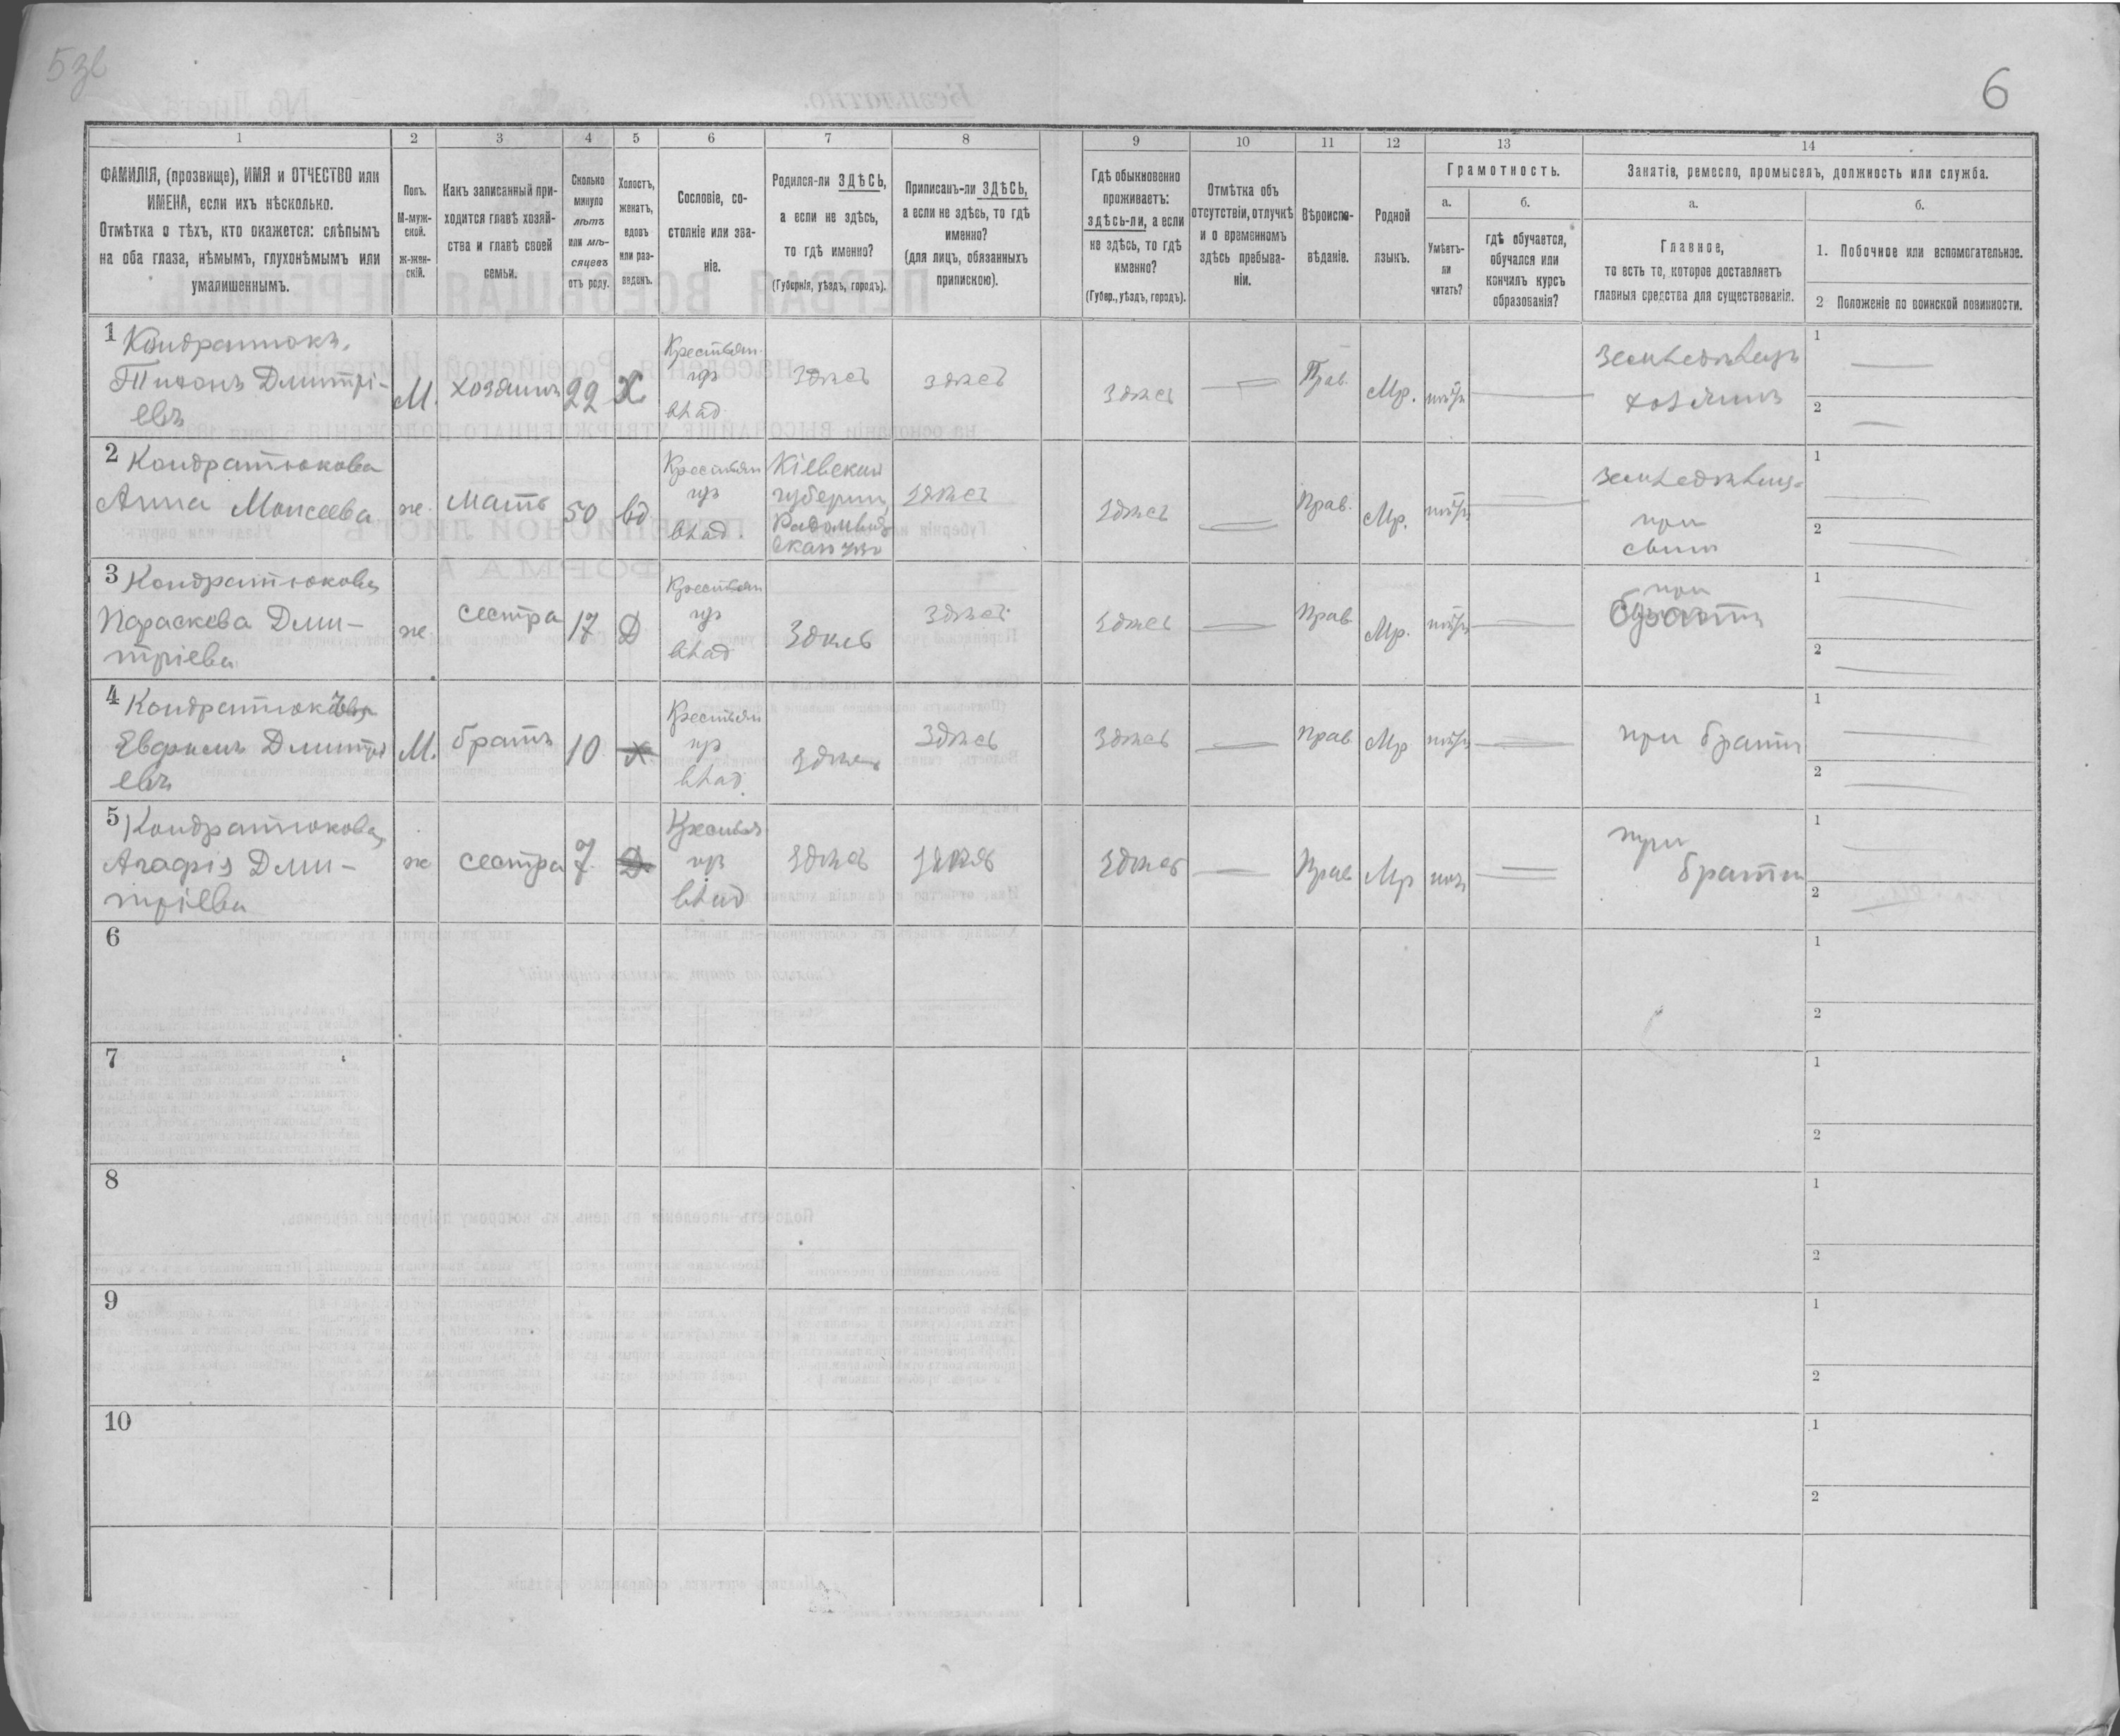 5зв
6
1
2
3
4
5
6
7
8
9
10
11
12
13
14
ФАМИЛІЯ, (прозвище), ИМЯ и ОТЧЕСТВО или
ИМЕНА, если ихъ нѣсколько.
Отмѣтка о тѣхъ, кто окажется: слѣпымъ
на оба глаза, нѣмымъ, глухонѣмымъ или
умалишеннымъ.
Полъ.
М-муж-
ской.
ж-жен-
скій.
Какъ записанный при-
ходится главѣ хозяй-
ства и главѣ своей
семьи.
Сколько
минуло
лѣтъ
или мѣ-
сяцевъ
отъ роду.
Холостъ,
женатъ,
вдовъ
или раз-
веденъ.
Сословіе, со-
стояніе или зва-
ніе.
Родился-ли ЗДѢСЬ,
а если не здѣсь,
то гдѣ именно?
(Губернія, уѣздъ, городъ).
Приписанъ-ли ЗДѢСЬ,
а если не здѣсь, то гдѣ
именно?
(для лицъ, обязанныхъ
припискою).
Гдѣ обыкновенно
проживаетъ:
здѣсь-ли, а если
не здѣсь, то гдѣ
именно?
(Губер., уѣздъ, городъ).
Отмѣтка объ
отсутствіи, отлучкѣ
и о временномъ
здѣсь пребыва-
ніи.
Вѣроиспо-
вѣданіе.
Родной
языкъ.
Грамотность.
а.
Умѣетъ-
ли
читать?
б.
гдѣ обучается,
обучался или
кончилъ курсъ
образованія?
Занятіе, ремесло, промыселъ, должность или служба.
а.
Главное,
то есть то, которое доставляетъ
главныя средства для существованія.
б.
1. Побочное или вспомогательное.
2 Положеніе по воинской повинности.
1 Кондратюкъ
Тихонъ Дмитрі-
евъ
М.
хозяинъ
22
Х
Крестьян.
изъ
влад
здѣсь
здѣсь
здѣсь
Прав.
Мр.
земледѣлецъ
хозяинъ
1
2
2 Кондратюкова
Анна Моисеева
ж.
мать
50
вд
Крестьян
изъ
влад.
Кіевской
губерніи,
здѣсь
здѣсь
Прав.
Мр.
при
сынѣ
1
2
3 Кондратюкова
Параскева Дми-
тріева
ж.
сестра
17
Д
Крестьян
изъ
влад
здѣсь
здѣсь
здѣсь
Прав
Мр.
при
братѣ
1
2
4
Евфимъ Дмитрі
евъ
М.
братъ
10
х
Крестьян
изъ
влад.
здѣсь
здѣсь
здѣсь
Прав
Мр
при братѣ
1
2
5 Кондратюкова
Агафія Дми-
тріева
ж
сестра
7
Д
изъ
влад
здѣсь
здѣсь
здѣсь
Прав
Мр
при
братѣ
1
2
6
1
2
7
1
2
8
1
2
9
1
2
10
1
2